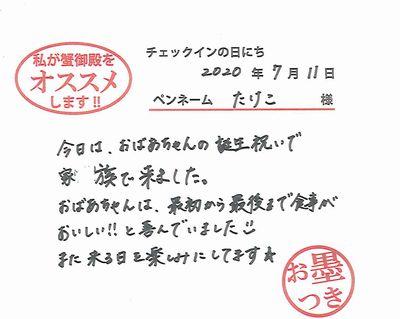 私が蟹御殿を
オススメ
します!!
チェックインの日にち
2020 年 7 月 11 日
ペンネーム たけこ 様
今日は、おばあちゃんの誕生祝いで
家族で来ました。
おばあちゃんは、最初から最後まで食事が
おいしい!!と喜んでいました
また来る日を楽しみにしてます☆
お墨
つき